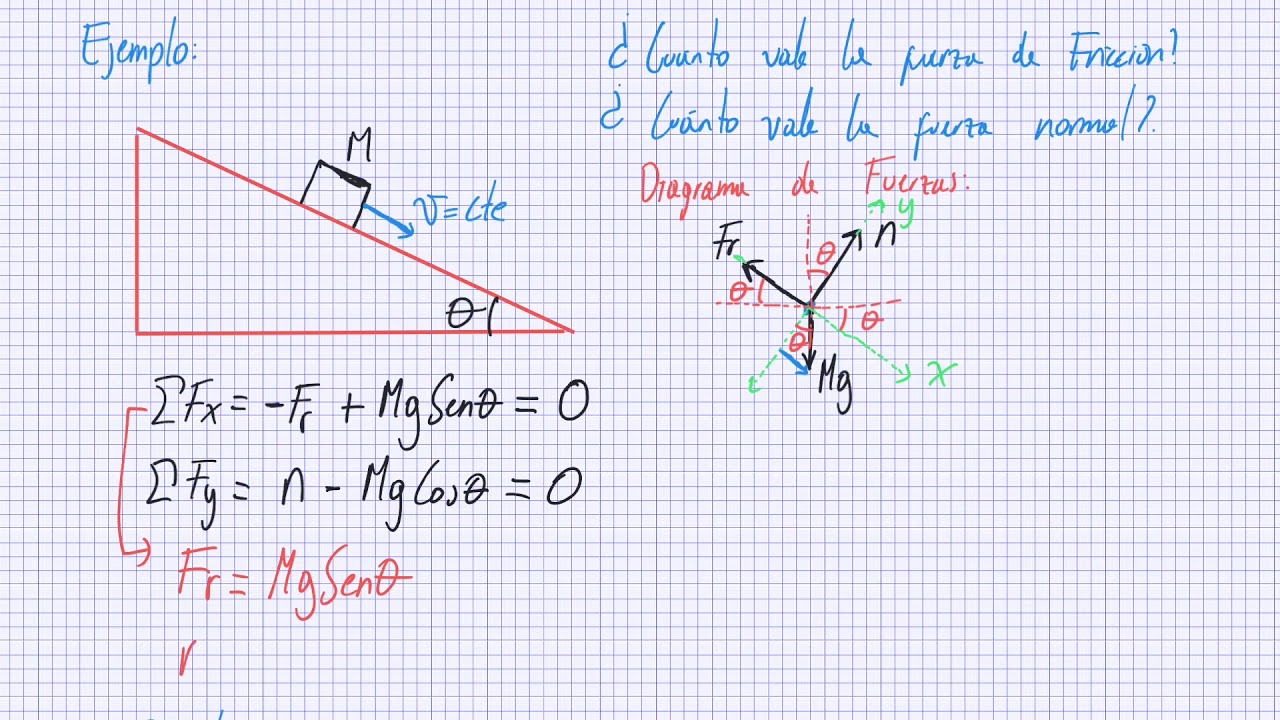 Ejemplo:
¿Cuanto vale la fuerza de Friccion?
¿Cuánto vale la fuerza normal?
M
V=Cte
θ
Diagrama de Fuerzas:
y
Fr
n
θ
θ
θ
θ
x
Mg
ΣFx = -Fr + MgSenθ = 0
ΣFy = n - MgCosθ = 0
Fr = MgSenθ
r